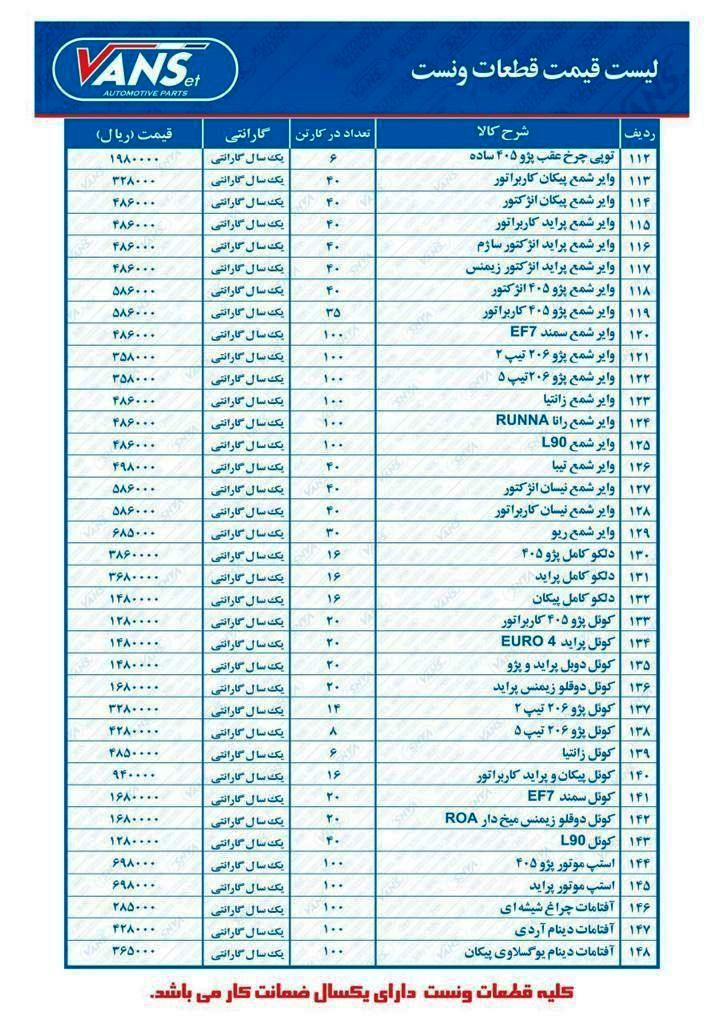 VANSet
AUTOMOTIVE PARTS
لیست قیمت قطعات ونست
ردیف شرح کالا تعداد در کارتن گارانتی قیمت (ریال)
۱۱۲ توپی چرخ عقب پژو ۴۰۵ ساده ۶ یک سال گارانتی ۱۹۸۰۰۰۰
۱۱۳ وایر شمع پیکان کاربراتور ۴۰ یک سال گارانتی ۳۲۸۰۰۰
۱۱۴ وایر شمع پیکان انژکتور ۴۰ یک سال گارانتی ۴۸۶۰۰۰
۱۱۵ وایر شمع پراید کاربراتور ۴۰ یک سال گارانتی ۴۸۶۰۰۰
۱۱۶ وایر شمع پراید انژکتور ساژم ۴۰ یک سال گارانتی ۴۸۶۰۰۰
۱۱۷ وایر شمع پراید انژکتور زیمنس ۴۰ یک سال گارانتی ۴۸۶۰۰۰
۱۱۸ وایر شمع پژو ۴۰۵ انژکتور ۴۰ یک سال گارانتی ۵۸۶۰۰۰
۱۱۹ وایر شمع پژو ۴۰۵ کاربراتور ۳۵ یک سال گارانتی ۵۸۶۰۰۰
۱۲۰ وایر شمع سمند EF7 ۱۰۰ یک سال گارانتی ۴۸۶۰۰۰
۱۲۱ وایر شمع پژو ۲۰۶ تیپ ۲ ۱۰۰ یک سال گارانتی ۳۵۸۰۰۰
۱۲۲ وایر شمع پژو ۲۰۶ تیپ ۵ ۱۰۰ یک سال گارانتی ۳۵۸۰۰۰
۱۲۳ وایر شمع زانتیا ۱۰۰ یک سال گارانتی ۴۸۶۰۰۰
۱۲۴ وایر شمع رانا RUNNA ۱۰۰ یک سال گارانتی ۴۸۶۰۰۰
۱۲۵ وایر شمع L90 ۱۰۰ یک سال گارانتی ۴۸۶۰۰۰
۱۲۶ وایر شمع تیبا ۴۰ یک سال گارانتی ۴۹۸۰۰۰
۱۲۷ وایر شمع نیسان انژکتور ۴۰ یک سال گارانتی ۵۸۶۰۰۰
۱۲۸ وایر شمع نیسان کاربراتور ۴۰ یک سال گارانتی ۵۸۶۰۰۰
۱۲۹ وایر شمع ریو ۳۰ یک سال گارانتی ۶۸۵۰۰۰
۱۳۰ دلکو کامل پژو ۴۰۵ ۱۶ یک سال گارانتی ۳۸۶۰۰۰۰
۱۳۱ دلکو کامل پراید ۱۶ یک سال گارانتی ۳۶۸۰۰۰۰
۱۳۲ دلکو کامل پیکان ۱۶ یک سال گارانتی ۱۴۸۰۰۰۰
۱۳۳ کوئل پژو ۴۰۵ کاربراتور ۲۰ یک سال گارانتی ۱۲۸۰۰۰۰
۱۳۴ کوئل پراید EURO 4 ۲۰ یک سال گارانتی ۱۴۸۰۰۰۰
۱۳۵ کوئل دوبل پراید و پژو ۲۰ یک سال گارانتی ۱۴۸۰۰۰۰
۱۳۶ کوئل دوقلو زیمنس پراید ۲۰ یک سال گارانتی ۱۶۸۰۰۰۰
۱۳۷ کوئل پژو ۲۰۶ تیپ ۲ ۱۴ یک سال گارانتی ۳۲۸۰۰۰۰
۱۳۸ کوئل پژو ۲۰۶ تیپ ۵ ۸ یک سال گارانتی ۴۲۸۰۰۰۰
۱۳۹ کوئل زانتیا ۶ یک سال گارانتی ۴۸۵۰۰۰۰
۱۴۰ کوئل پیکان و پراید کاربراتور ۱۶ یک سال گارانتی ۹۴۰۰۰۰
۱۴۱ کوئل سمند EF7 ۲۰ یک سال گارانتی ۱۶۸۰۰۰۰
۱۴۲ کوئل دوقلو زیمنس میخ دار ROA ۲۰ یک سال گارانتی ۱۶۸۰۰۰۰
۱۴۳ کوئل L90 ۴۰ یک سال گارانتی ۱۲۸۰۰۰۰
۱۴۴ استپ موتور پژو ۴۰۵ ۱۰۰ یک سال گارانتی ۶۹۸۰۰۰
۱۴۵ استپ موتور پراید ۱۰۰ یک سال گارانتی ۶۹۸۰۰۰
۱۴۶ آفتامات چراغ شیشه ای ۱۰۰ یک سال گارانتی ۲۸۵۰۰۰
۱۴۷ آفتامات دینام آردی ۱۰۰ یک سال گارانتی ۴۲۸۰۰۰
۱۴۸ آفتامات دینام یوگسلاوی پیکان ۱۰۰ یک سال گارانتی ۳۶۵۰۰۰
کلیه قطعات ونست دارای یکسال ضمانت کار می باشد.